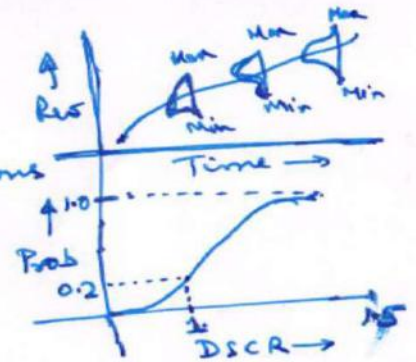 Max
Max
Max
Rev
Min
Min
Min
Time
1.0
Prob
0.2
1.
1.5
DSCR